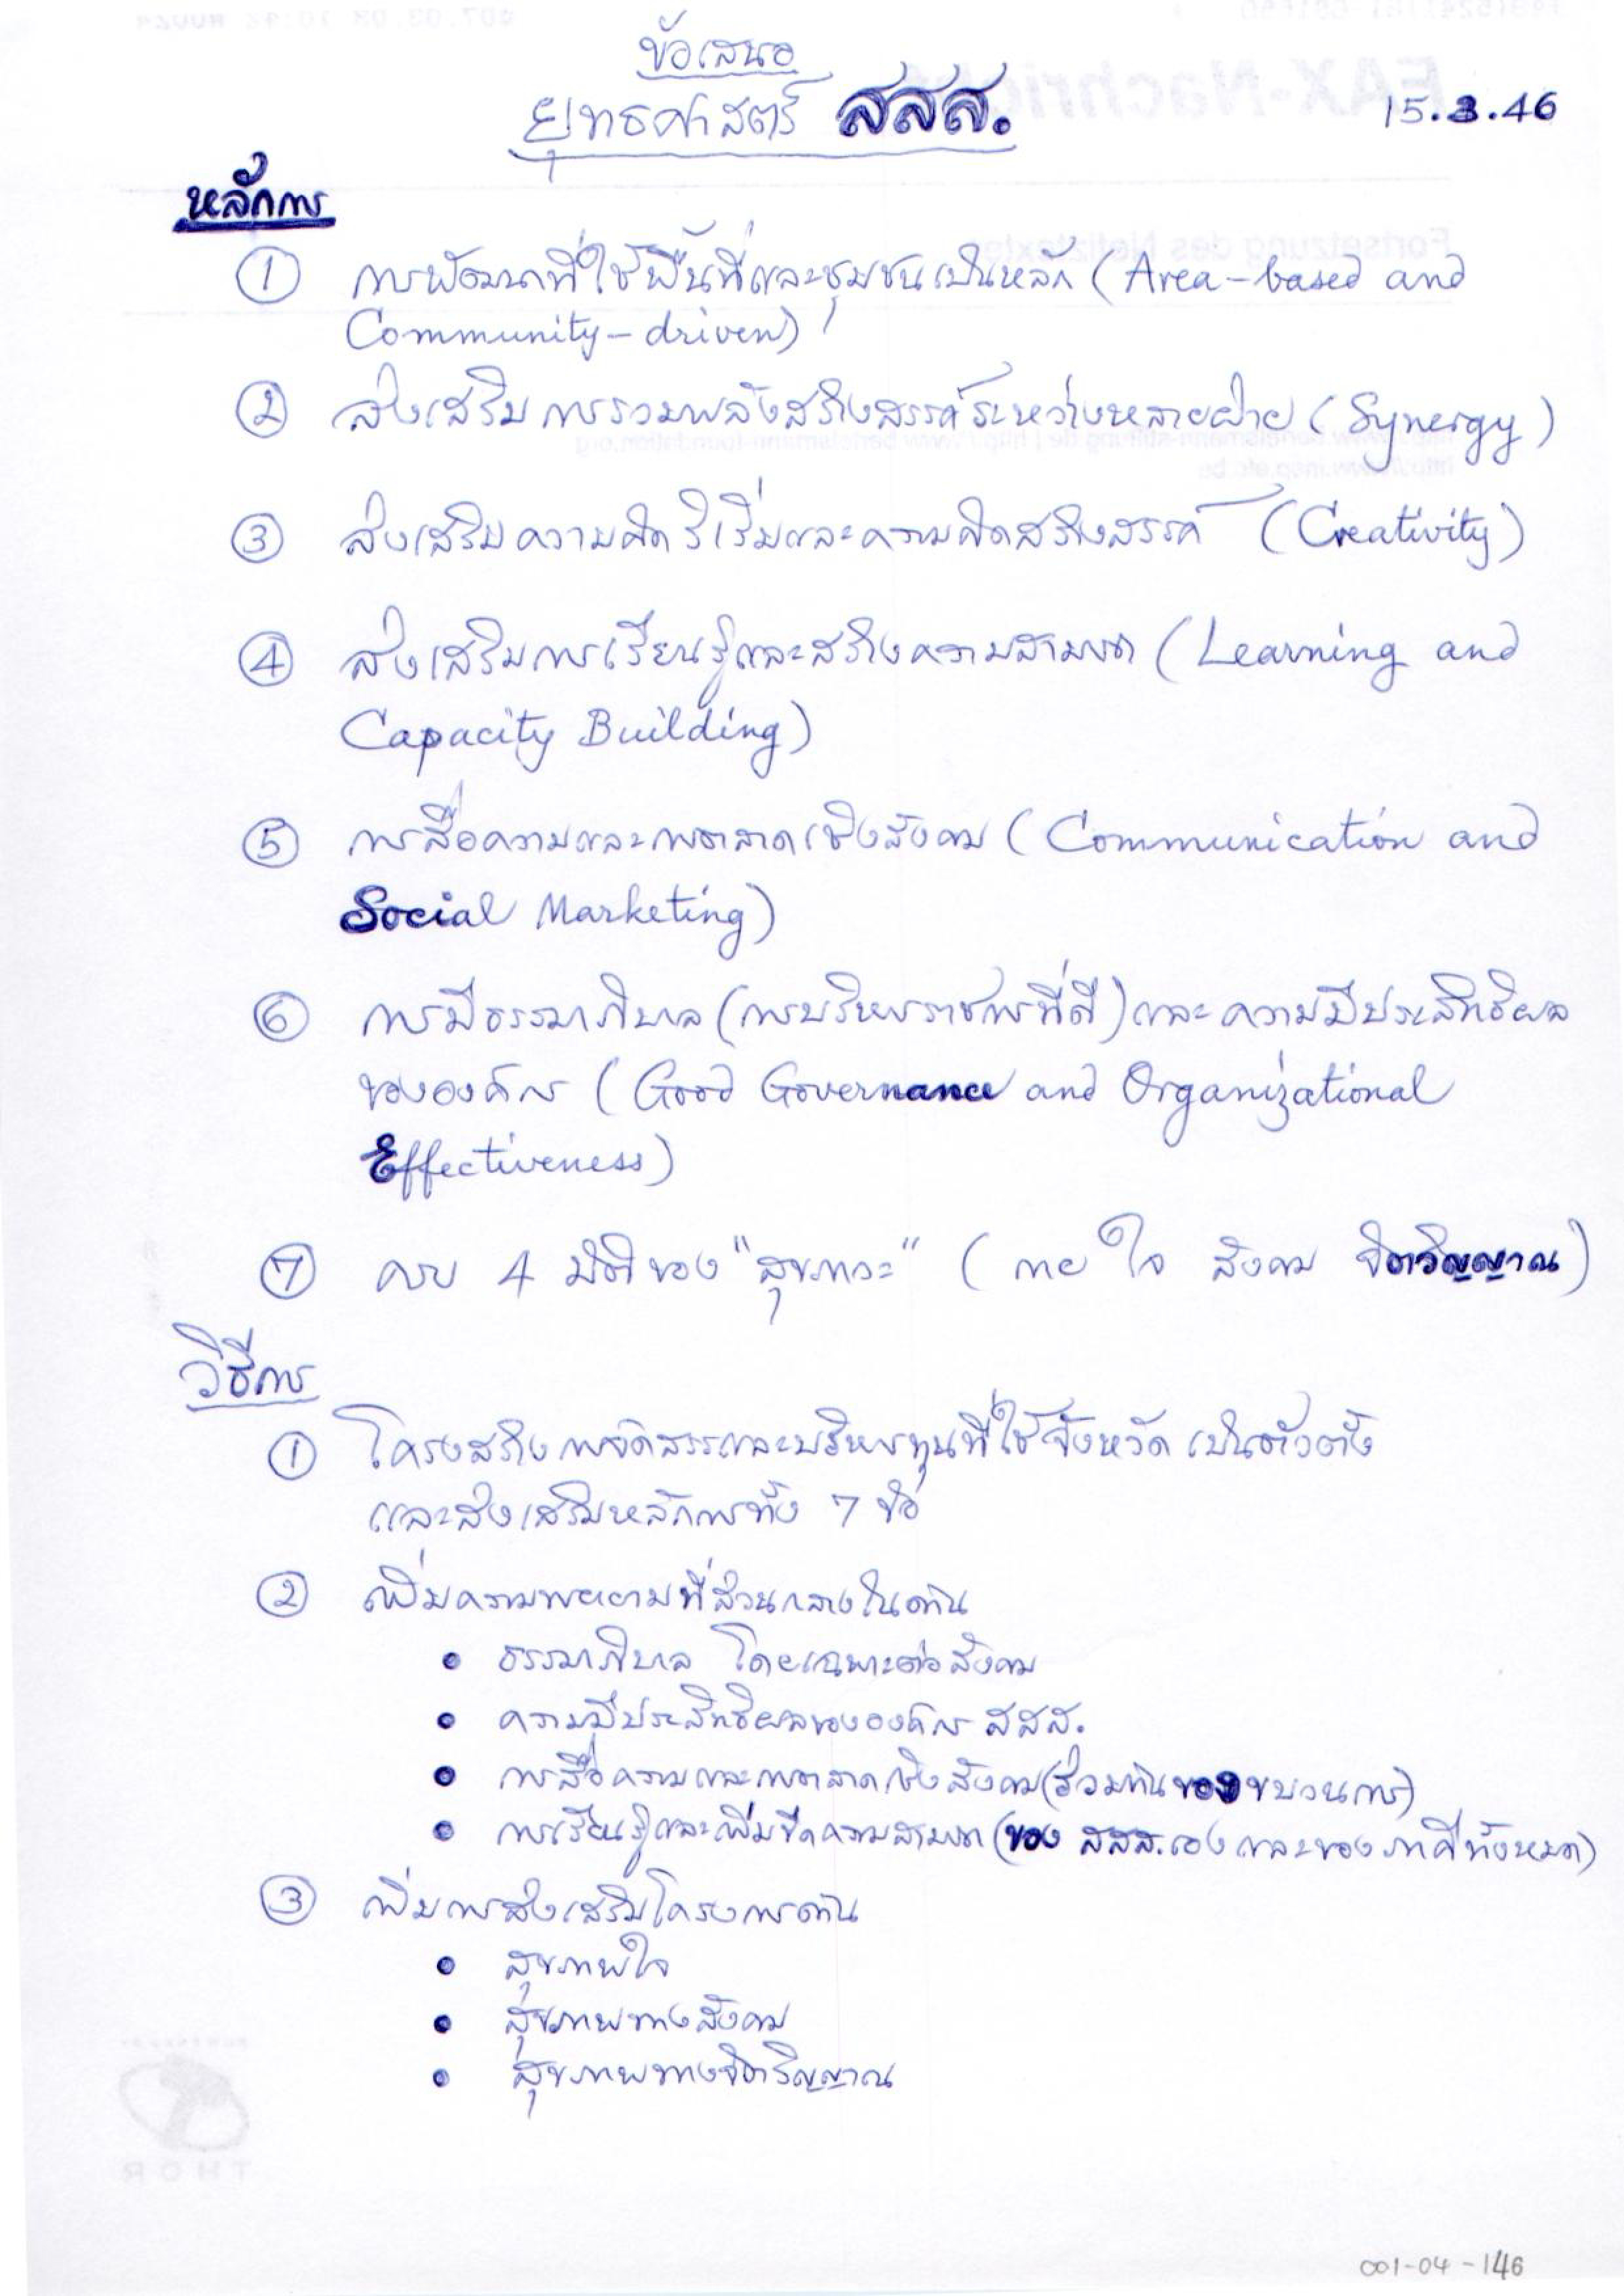 ข้อเสนอ
ยุทธศาสตร์ สสส.
15.3.46
หลักการ
① การพัฒนาที่ใช้พื้นที่และชุมชนเป็นหลัก (Area-based and
Community-driven)
② ส่งเสริมการรวมพลังสร้างสรรค์ระหว่างหลายฝ่าย (Synergy)
③ ส่งเสริมความคิดริเริ่มและความคิดสร้างสรรค์ (Creativity)
④ ส่งเสริมการเรียนรู้และสร้างความสามารถ (Learning and
Capacity Building)
⑤ การสื่อความและการตลาดเชิงสังคม (Communication and
Social Marketing)
⑥ การมีธรรมาภิบาล (การบริหารราชการที่ดี) และความมีประสิทธิผล
ขององค์กร (Good Governance and Organizational
Effectiveness)
⑦ ครบ 4 มิติของ "สุขภาวะ" (กาย ใจ สังคม จิตวิญญาณ)
วิธีการ
① โครงสร้างการจัดสรรและบริหารทุนที่ใช้จังหวัดเป็นตัวตั้ง
และส่งเสริมหลักการทั้ง 7 ข้อ
② เพิ่มความพยายามที่ส่วนกลางในด้าน
• ธรรมาภิบาล โดยเฉพาะต่อสังคม
• ความมีประสิทธิผลขององค์กร สสส.
• การสื่อความและการตลาดเชิงสังคม (ร่วมกันของขบวนการ)
• การเรียนรู้และเพิ่มขีดความสามารถ (ของ สสส. เอง และของภาคีทั้งหมด)
③ เพิ่มการส่งเสริมโครงการด้าน
• สุขภาพใจ
• สุขภาพทางสังคม
• สุขภาพทางจิตวิญญาณ
THOR
001-04-146